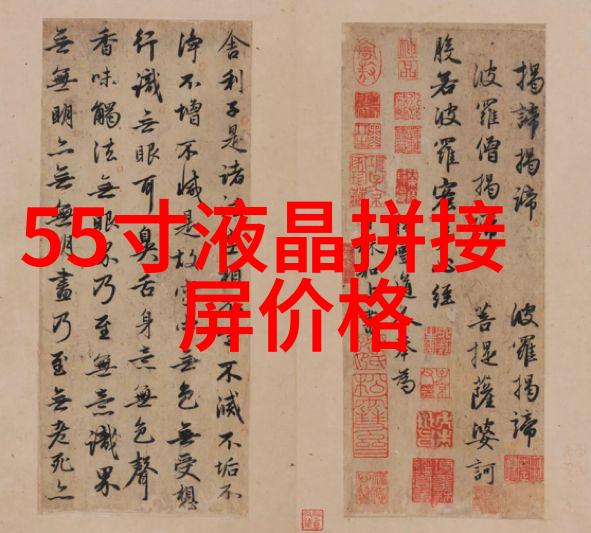 55寸液晶拼接
屏价格
舍利子是諸相不不滅不垢不
淨不增不減是故空中無色無受想
行識无眼耳鼻舌身意無色聲
香味觸法無眼界乃至無意識界
無無明亦無無明盡乃至無老死亦
揭諦揭諦 波羅揭諦
波羅僧揭諦 菩提薩婆訶
般若波羅蜜心經
雪道人奉為
和上